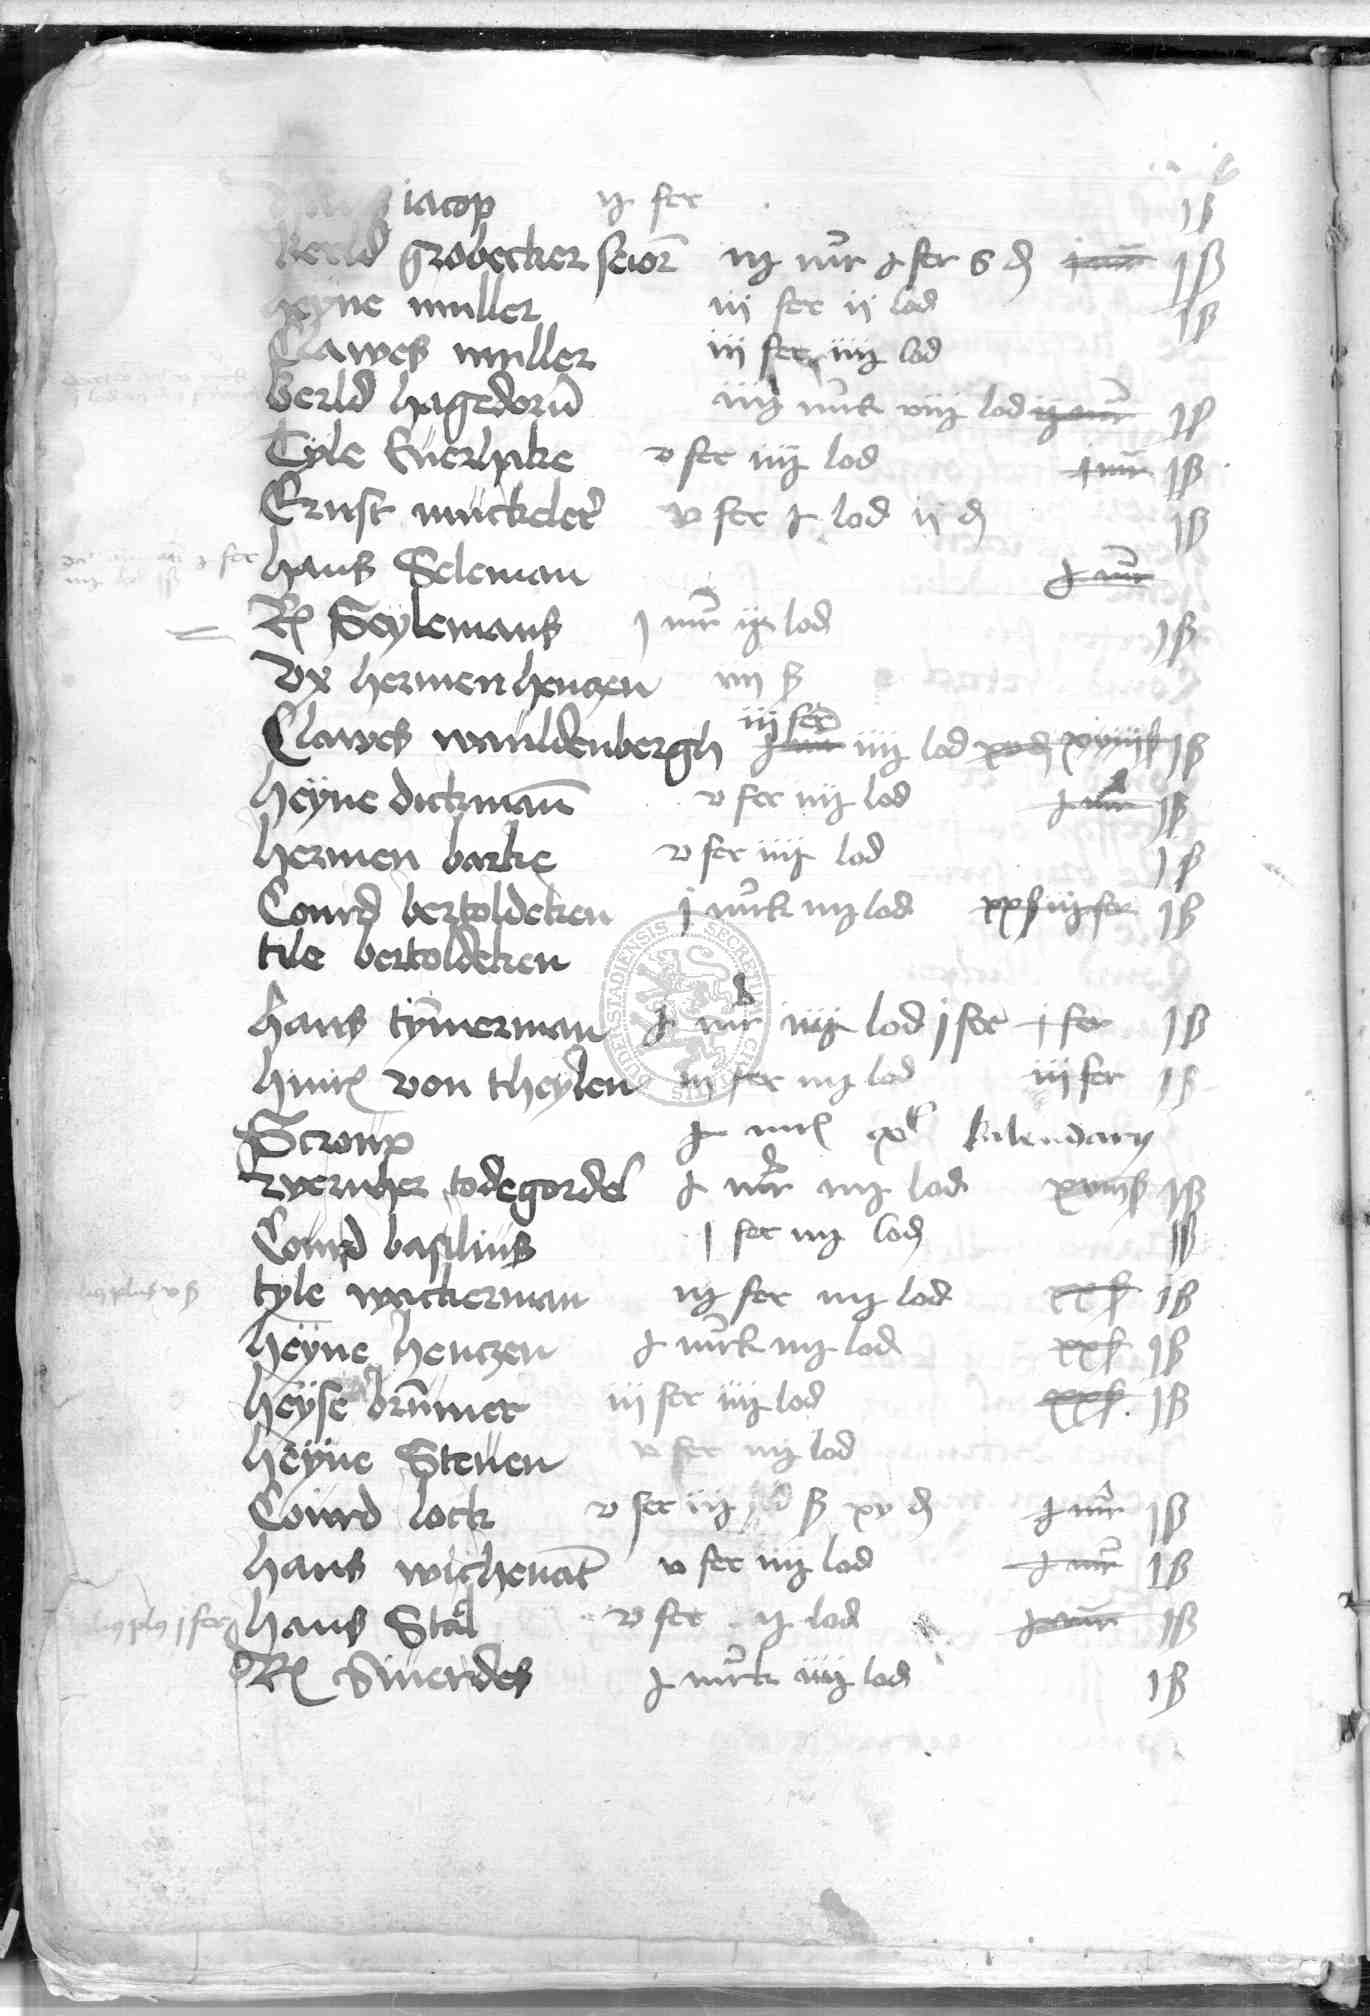 iacop ij fer j ß
Berld grobecker seior iij mr j fer 6 d j mr j ß
heyne muller iij fer ij lod j ß
Clawes muller iij fer iiij lod
berld hagedorn iiij mrk viij lod ij mr j ß
Tyle Euerlpke v fer iiij lod j mr j ß
Ernst muckeler v fer j lod ij d j ß
hans Seleman j mr
Rel Seylemans j mr ij lod j ß
vx hermen henczen iiij ß
iij fer
Clawes wauldenbergh j mr iiij lod xv d xviij ß j ß
heyne dickman v fer iiij lod j mr j ß
hermen barke v fer iiij lod j ß
Conrd bertoldeken j mrk iiij lod xx ß iij fer j ß
tile bertoldeken
hans tymerman j mr iiij lod j fer j fer j ß
hinr von theylen iij fer iiij lod iij fer j ß
Scroup j mr kalendarij
wernher todegordel j mr iiij lod xviij ß j ß
Conrd basilius j fer iiij lod j ß
tyle wackerman iij fer iiij lod xx ß j ß
heyne henczen j mrk iiij lod xx ß j ß
heyse brummer iij fer iiij lod xx ß j ß
heyne Steuen v fer iiij lod
Conrd lock v fer iij ß xv d j mr j ß
hans wichenant v fer iiij lod j mr j ß
j fer hans Stal v fer ij lod j mr j ß
Rel Siuerdes j mrk iiij lod j ß